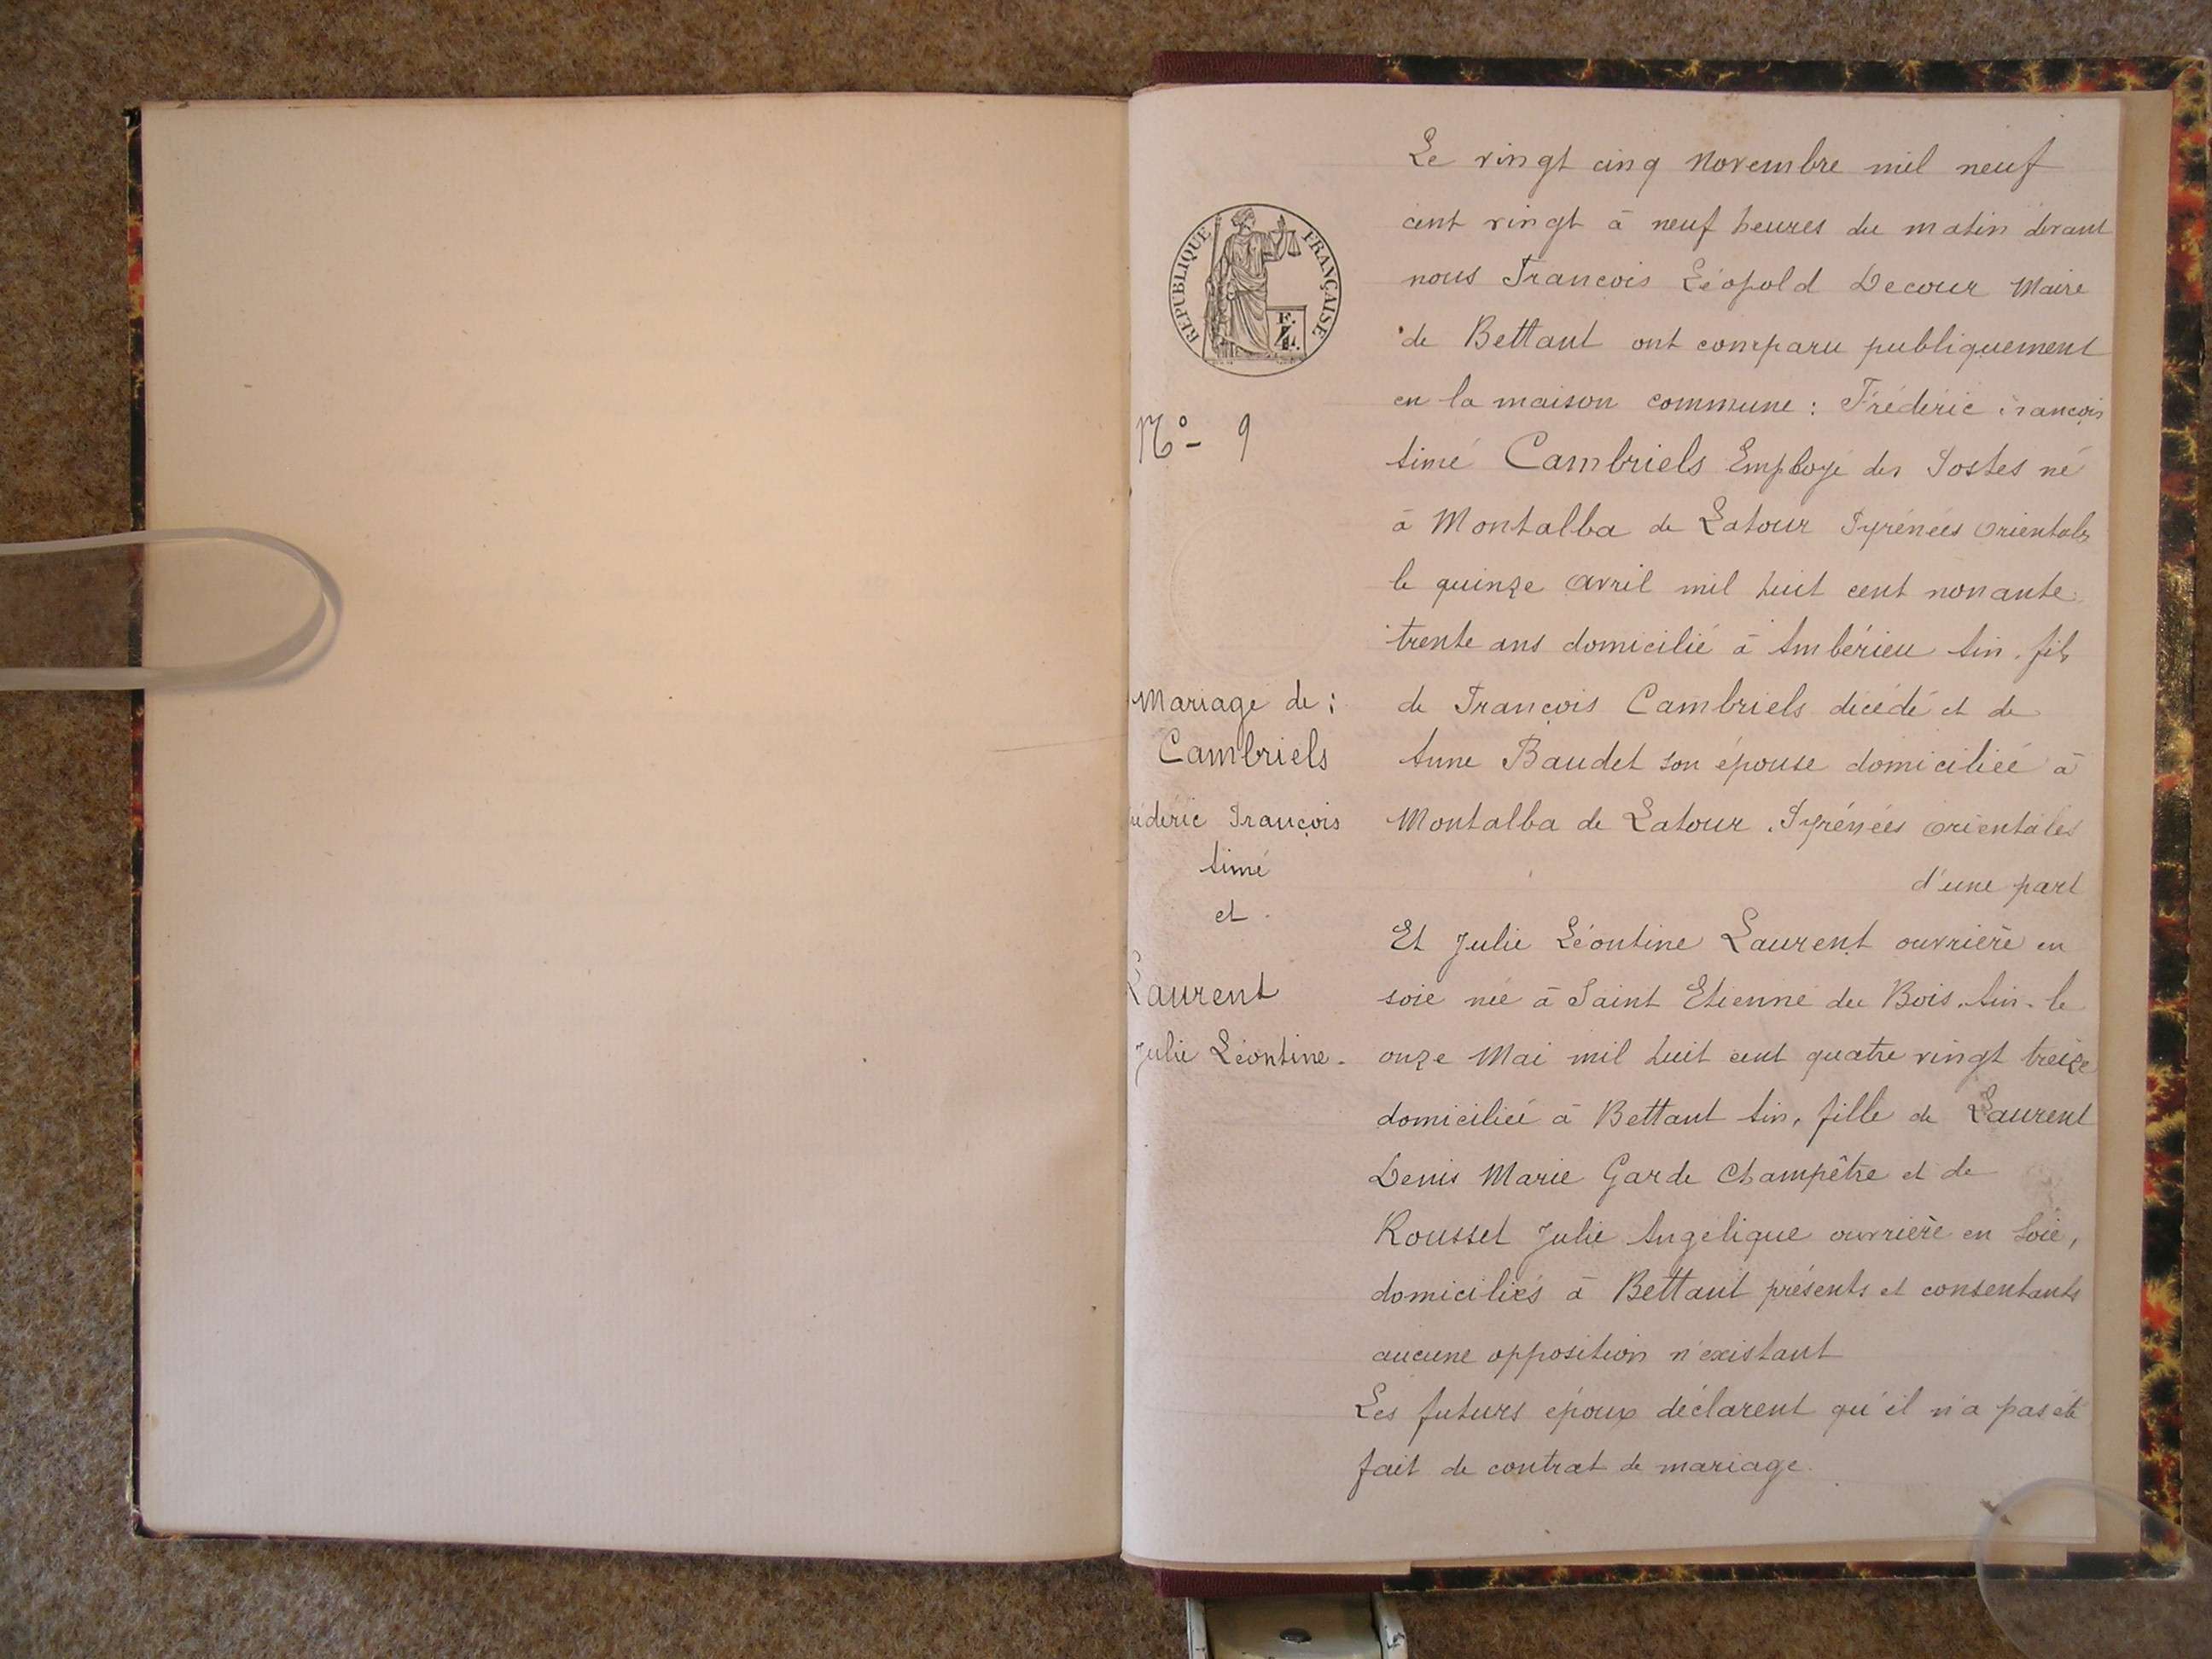 RÉPUBLIQUE FRANÇAISE
N° 9
Mariage de :
Cambriels
Frédéric François
Aimé
et
Laurent
Julie Léontine.
Le vingt cinq Novembre mil neuf
cent vingt à neuf heures du matin devant
nous François Léopold Decour Maire
de Bettant ont comparu publiquement
en la maison commune : Frédéric François
Aimé Cambriels Employé des Postes né
à Montalba de Latour Pyrénées Orientales
le quinze Avril mil huit cent nonante
trente ans domicilié à Ambérieu Ain. fils
de François Cambriels décédé et de
Anne Baudet son épouse domiciliée à
Montalba de Latour. Pyrénées Orientales
d'une part
Et Julie Léontine Laurent ouvrière en
soie née à Saint Etienne du Bois. Ain. le
onze Mai mil huit cent quatre vingt treize
domiciliée à Bettant Ain, fille de Laurent
Denis Marie Garde Champêtre et de
Rousset Julie Angélique ouvrière en Soie,
domiciliés à Bettant présents et consentants
aucune opposition n'existant
Les futurs époux déclarent qu'il n'a pas été
fait de contrat de mariage.